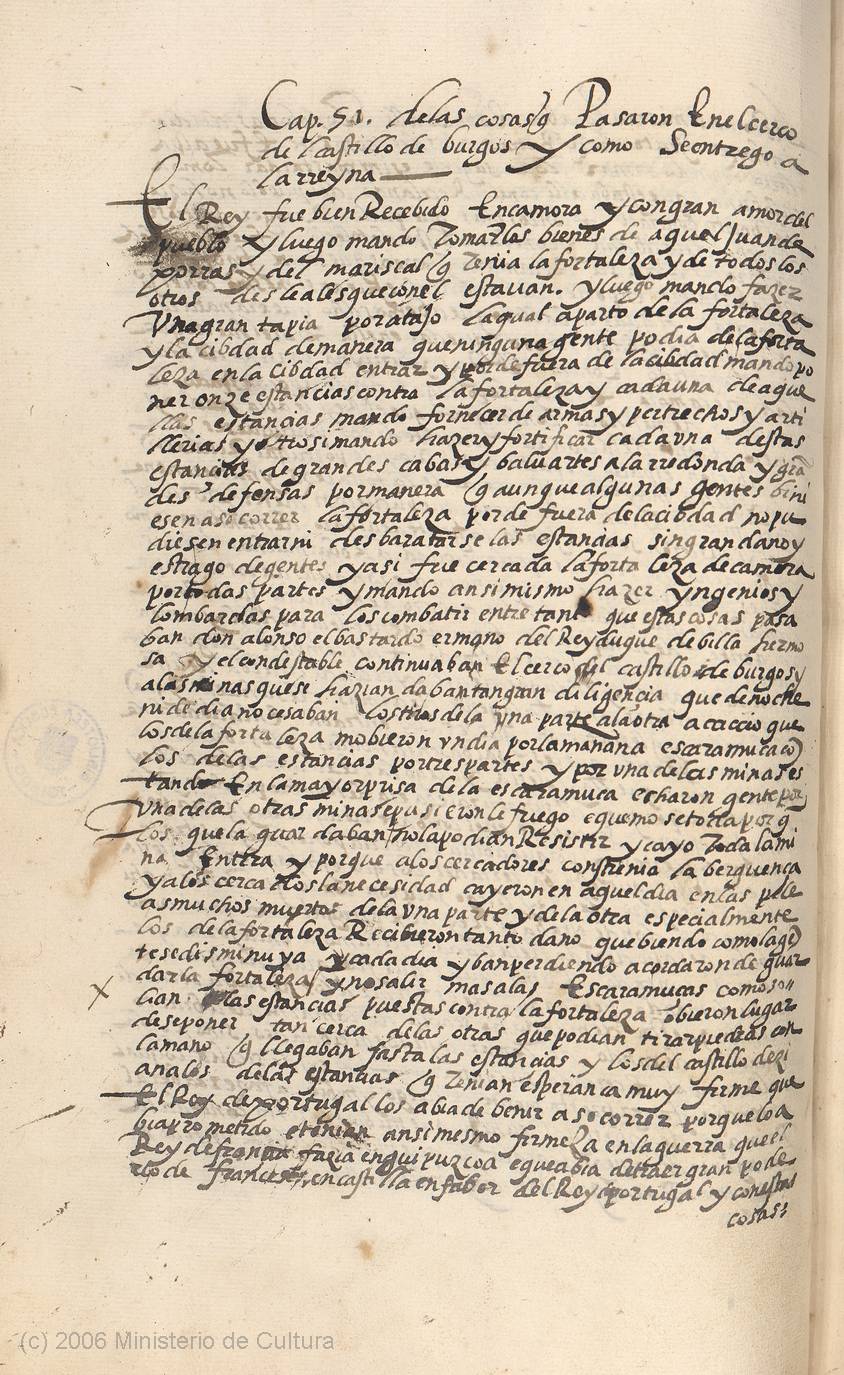 Cap. 51. de las cosas q Pasaron En el cerco
de l castillo de burgos y como Se entrego a
la rreyna
El Rey fue bien Recebido En camora y con gran amor del
pueblo y luego mando tomar los bienes de aquel Juan de
porras y del mariscal q tenia la fortaleza y de todos los
otros desleales que con el estavan. y luego mando fazer
vna gran tapia por atajo la qual aparto de la fortaleza
y la cibdad de manera que ninguna gente podia de la forta
leza en la cibdad entrar y por de fuera de la cibdad mando po
ner onze estancias contra la fortaleza y cada vna de aque
llas estancias mando fornecer de armas y pertrechos y arti
llerias y otrosi mando hazer y fortificar cada vna destas
estancias de grandes cabas y baluartes a la rredonda y grã
des defensas por manera q aunque algunas gentes bini
esen a socorrer la fortaleza por de fuera de la cibdad no pu
diesen entrar ni desbaratar se las estancias sin gran dano y
estrago de gentes y asi fue cercada la forta leza de camora
por todas partes y mando ansi mismo hazer yngenios y
lombardas para los combatir entre tanto que estas cosas pasa
ban don alonso el bastardo ermano del Rey duque de billa hermo
sa y el condestable continuaban El cerco del castillo de burgos y
a las minas que se hazian daban tan gran diligencia que de noche
ni de dia no cesaban los tiros de la vna parte a la otra acaecio que
los de la forta leza mobieron vn dia por la manana escaramuca cõ
los de las estancias por tres partes y por vna de las minas es
tando En la mayor prisa de la escaramuca echaron gente por
vna de las otras minas e pusieronle fuego e quemose toda por q
los que la guardaban no la podian Resistir y cayo toda la mi
na Entera y porque a los cercadores constrenia la berguenca
y a los cercados la necesidad cayeron en aquel dia en las pele
as muchos muertos de la vna parte y de la otra especialmente
los de la fortaleza Recibieron tanto dano que biendo como la gẽ
te se disminuya y cada dia yban perdiendo acordaron de guar
dar la fortaleza y no salir mas a las Escaramucas como so
lian las estancias puestas contra la fortaleza obieron lugar
de se poner tan cerca de las otras que podian tirar piedras con
la mano q llegaban fasta las estancias y los del castillo dezi
an a los de las estancias q tenian esperanca muy firme que
El Rey de portugal los abia de benir a socorrer porque lo a
bia prometido e tenian ansi mesmo firmeza en la guerra que el
Rey de francia fazia en guipuzcoa e que abia de traer gran pode
rio de franceses en castilla en fabor del Rey de portugal y con estas
cosas:
(c) 2006 Ministerio de Cultura